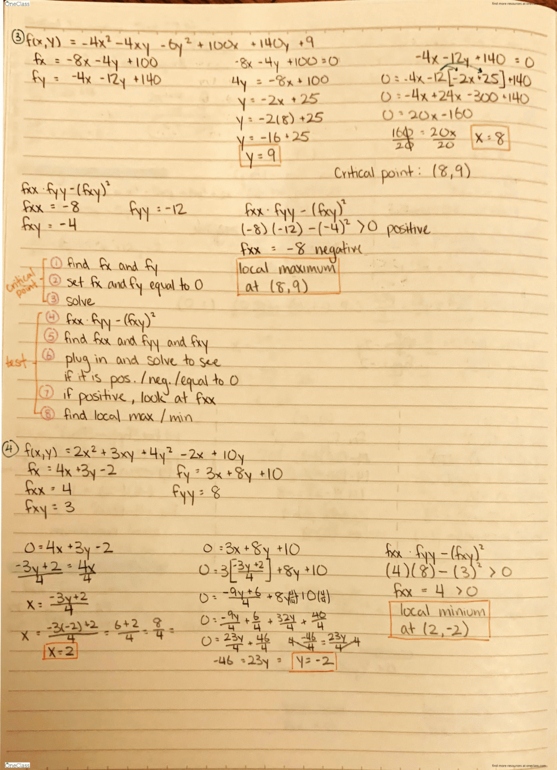 OneClass
③ f(x,y) = -4x² -4xy - 6y² + 100x + 140y + 9
fx = -8x - 4y + 100
fy = -4x - 12y + 140
-8x - 4y + 100 = 0
4y = -8x + 100
y = -2x + 25
y = -2(8) + 25
y = -16 + 25
y = 9
-4x - 12y + 140 = 0
0 = -4x - 12[-2x + 25] + 140
0 = -4x + 24x - 300 + 140
0 = 20x - 160
160/20 = 20x/20 x = 8
Critical point: (8,9)
fxx · fyy - (fxy)²
fxx = -8 fyy = -12
fxy = -4
fxx · fyy - (fxy)²
(-8)(-12) - (-4)² > 0 positive
fxx = -8 negative
local maximum
at (8,9)
critical point
① find fx and fy
② set fx and fy equal to 0
③ solve
test
④ fxx · fyy - (fxy)²
⑤ find fxx and fyy and fxy
⑥ plug in and solve to see
if it is pos. / neg. / equal to 0
⑦ if positive, look at fxx
⑧ find local max / min
④ f(x,y) = 2x² + 3xy + 4y² - 2x + 10y
fx = 4x + 3y - 2 fy = 3x + 8y + 10
fxx = 4 fyy = 8
fxy = 3
0 = 4x + 3y - 2
-3y+2/4 = 4x/4
x = -3y+2/4
x = -3(-2)+2/4 = 6+2/4 = 8/4 =
x = 2
0 = 3x + 8y + 10
0 = 3[-3y+2/4] + 8y + 10
0 = -9y+6/4 + 8y(4/4) + 10(4/4)
0 = -9y/4 + 6/4 + 32y/4 + 40/4
0 = 23y/4 + 46/4 4 · -46/4 = 23y/4 · 4
-46 = 23y = y = -2
fxx · fyy - (fxy)²
(4)(8) - (3)² > 0
fxx = 4 > 0
local minium
at (2,-2)
OneClass